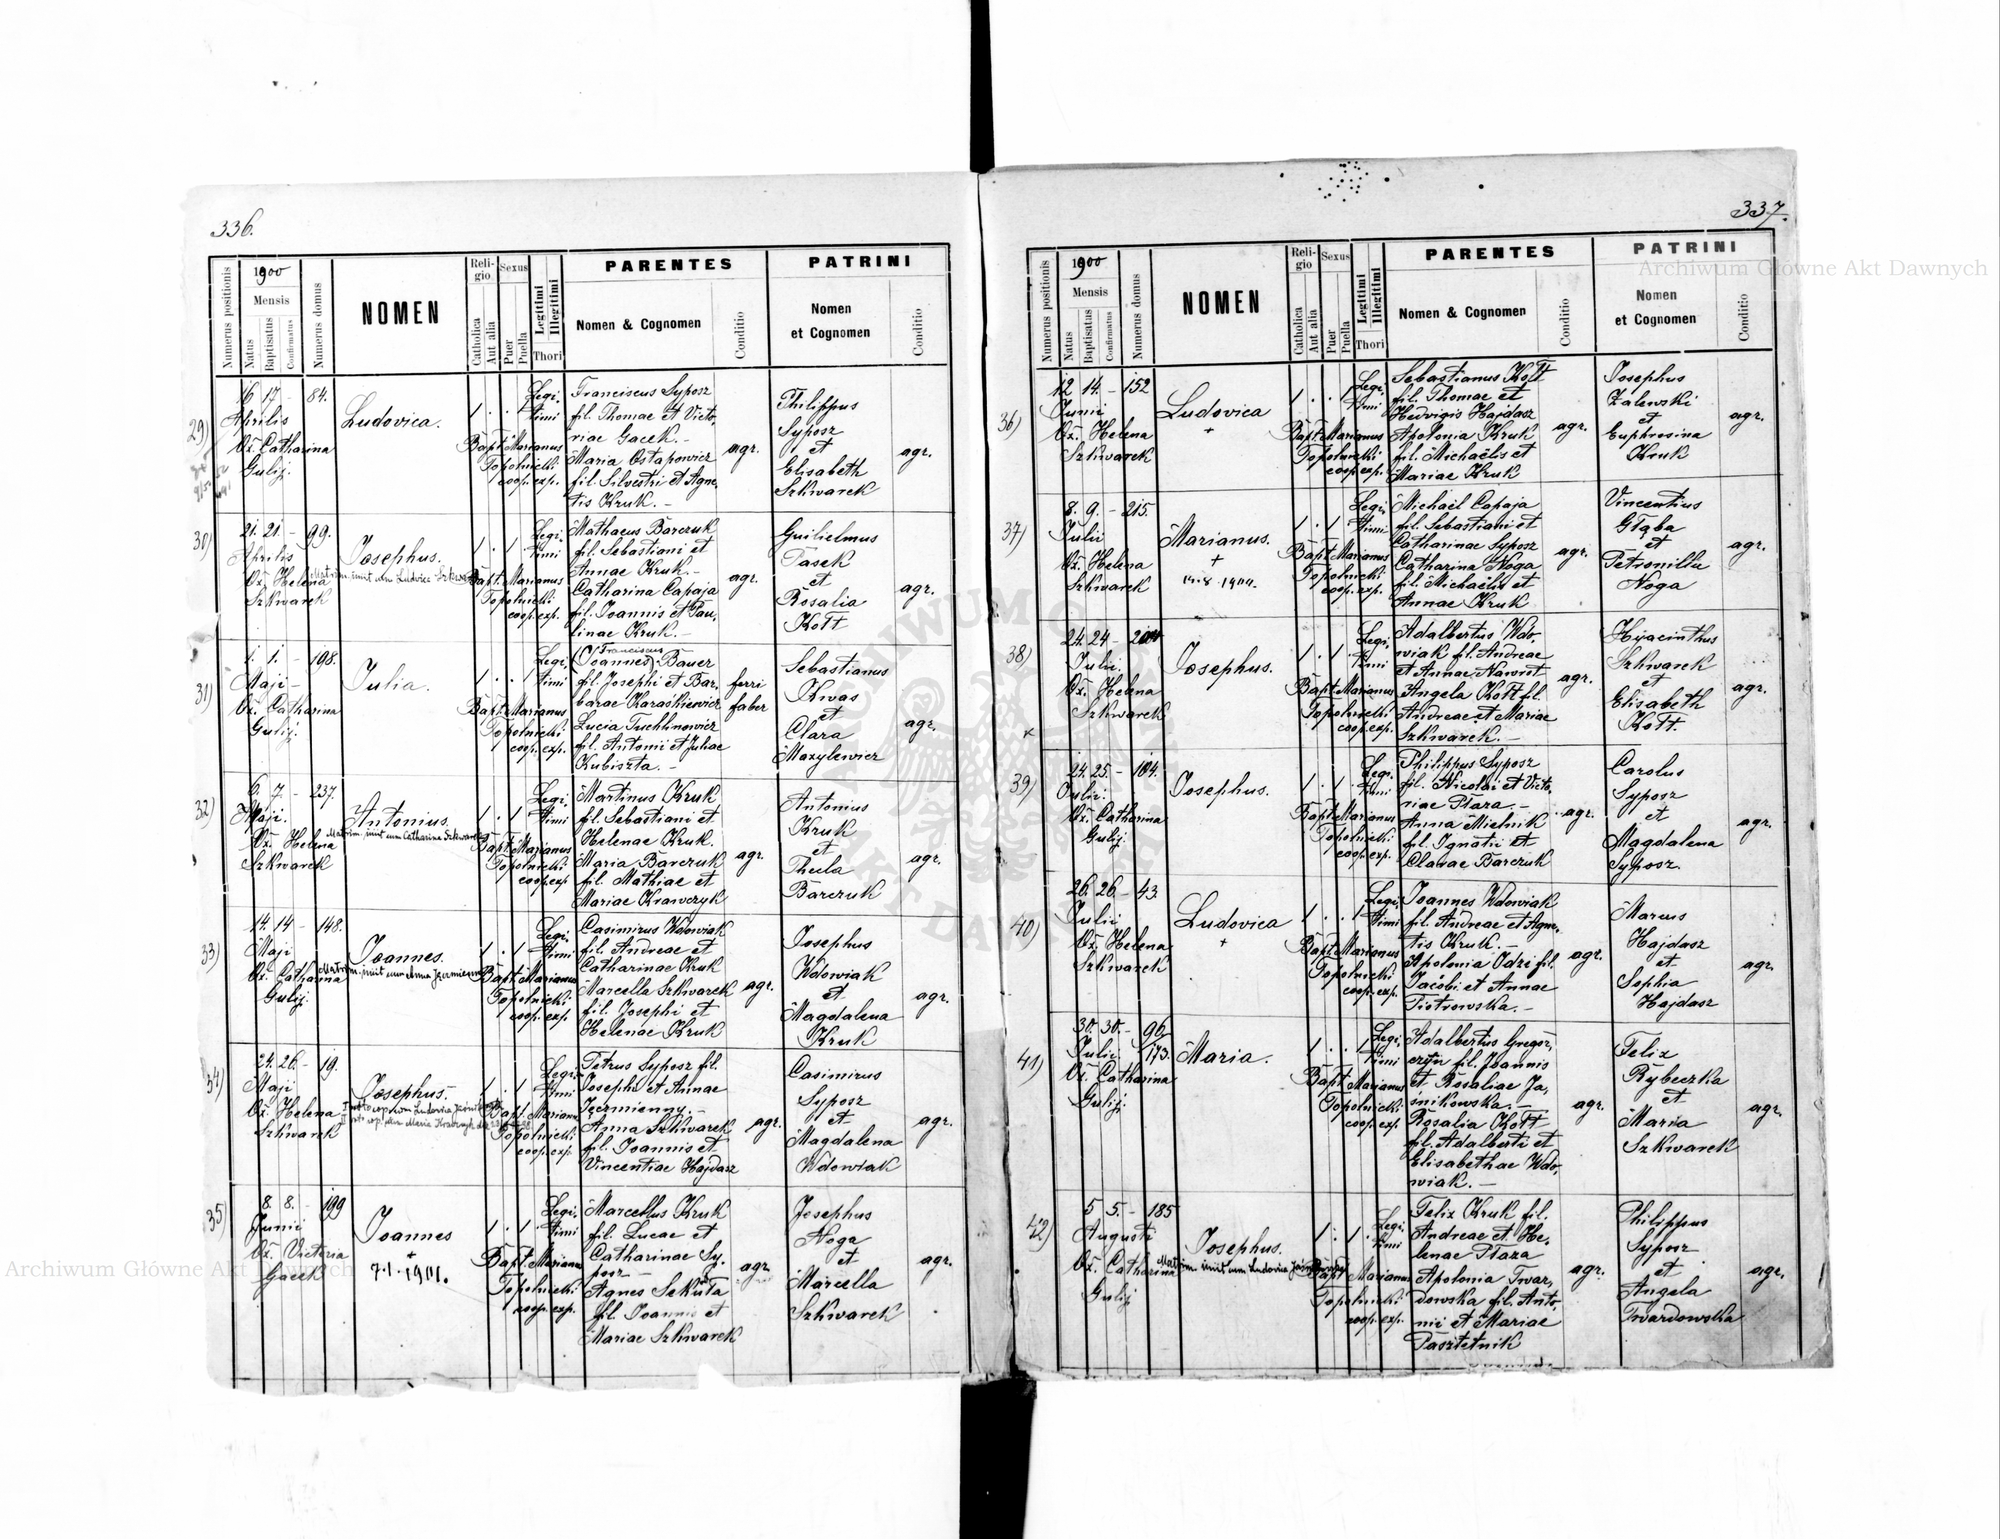 336.
Numerus positionis
1900
Mensis
Natus
Baptisatus
Confirmatus
Numerus domus
NOMEN
Religio
Catholica
Aut alia
Sexus
Puer
Puella
Legitimi
Illegitimi
Thori
PARENTES
Nomen & Cognomen
Conditio
PATRINI
Nomen
et Cognomen
Conditio
29)
16 17 - 84.
Aprilis
Ox. Catharina
Gulij.
Ludovica.
1 . . 1
Legi,
timi
Bapt. Marianus
Topolnicki
coop. exp.
Franciscus Syposz
fil. Thomae et Victo,
riae Gacek. -
Maria Ostapowicz
fil. Silvestri et Agne,
tis Kruk. -
agr.
Philippus
Syposz
et
Elisabeth
Szkwarek
agr.
30)
21. 21. - 99.
Aprilis
Ox. Helena
Szkwarek
Josephus.
Matrim. iniit cum Ludovica Szkwarek
1 . 1
Legi,
timi
Bapt. Marianus
Topolnicki
coop. exp.
Mathaeus Barczuk
fil. Sebastiani et
Annae Kruk. -
Catharina Capaja
fil. Joannis et Pau,
linae Kruk. -
agr.
Guilielmus
Pasek
et
Rosalia
Kott
agr.
31)
1. 1. - 198.
Maji -
Ox. Catharina
Gulij.
Julia.
1 . . 1
Legi,
timi
Bapt. Marianus
Topolnicki
coop. exp.
Franciscus
(Joannes) Bauer
fil. Josephi et Bar,
barae Karaśkiewicz
Lucia Tuchlinowicz
fil. Antonii et Juliae
Kubiszta. -
ferri
faber
Sebastianus
Kwas
et
Clara
Mazylewicz
agr.
32)
6. 7 - 237.
Maji.
Ox. Helena
Szkwarek
Antonius.
Matrim. iniit cum Catharina Szkwarek
1 . 1
Legi,
timi
Bapt. Marianus
Topolnicki
coop. exp.
Martinus Kruk
fil. Sebastiani et
Helenae Kruk.
Maria Barczuk
fil. Mathiae et
Mariae Krawczyk
agr.
Antonius
Kruk
et
Thecla
Barczuk
agr.
33)
14. 14 - 148.
Maji
Ox. Catharina
Gulij.
Joannes.
Matrim. iniit cum Anna Jzermienny
1 . 1
Legi,
timi
Bapt. Marianus
Topolnicki
coop. exp.
Casimirus Wdowiak
fil. Andreae et
Catharinae Kruk
Marcella Szkwarek
fil. Josephi et
Helenae Kruk
agr.
Josephus
Wdowiak
et
Magdalena
Kruk
agr.
34)
24. 26. - 19.
Maji
Ox. Helena
Szkwarek
Josephus.
1 . 1
Legi,
timi
Bapt. Marianus
Topolnicki
coop. exp.
Petrus Syposz fil.
Josephi et Annae
Anna Szkwarek
fil. Joannis et
Vincentiae Hajdasz
agr.
Casimirus
Syposz
et
Magdalena
Wdowiak
agr.
35)
8. 8. - 199
Junii
Ox. Victoria
Gacek
Joannes
+
7.1.1901.
1 . 1
Legi,
timi
Bapt. Marianus
Topolnicki
coop. exp.
Marcellus Kruk
fil. Lucae et
Catharinae Sy,
posz -
Agnes Sekuta
fil. Joannis et
Mariae Szkwarek
agr.
Josephus
Noga
et
Marcella
Szkwarek
agr.
337.
Numerus positionis
1900
Mensis
Natus
Baptisatus
Confirmatus
Numerus domus
NOMEN
Religio
Catholica
Aut alia
Sexus
Puer
Puella
Legitimi
Illegitimi
Thori
PARENTES
Nomen & Cognomen
Conditio
PATRINI
Nomen
et Cognomen
Conditio
36)
12 14. - 152
Junii
Ox. Helena
Szkwarek
Ludovica
+
1 . . 1
Legi,
timi
Bapt. Marianus
Topolnicki
coop. exp.
Sebastianus Kott
fil. Thomae et
Hedvigis Hajdasz
Apolonia Kruk
fil. Michaëlis et
Mariae Kruk
agr.
Josephus
Zalewski
et
Euphrosina
Kruk
agr.
37)
8. 9. - 215.
Julii
Ox. Helena
Szkwarek
Marianus.
+
1 . 1
Legi,
timi
Bapt. Marianus
Topolnicki
coop. exp.
Michaël Capaja
fil. Sebastiani et
Catharinae Syposz
Catharina Noga
fil. Michaëlis et
Annae Kruk
agr.
Vincentius
Głąba
et
Petronilla
Noga
agr.
38)
24. 24 -
Julii
Ox. Helena
Szkwarek
Josephus.
1 . 1
Legi,
timi
Bapt. Marianus
Topolnicki
coop. exp.
Adalbertus Wdo,
wiak fil. Andreae
et Annae Nawrot
Angela Kott fil.
Andreae et Mariae
Szkwarek. -
agr.
Hyacinthus
Szkwarek
et
Elisabeth
Kott.
agr.
39)
24. 25. - 104.
Julii.
Ox. Catharina
Gulij.
Josephus.
1 . 1
Legi,
timi
Bapt. Marianus
Topolnicki
coop. exp.
Philippus Syposz
fil. Nicolai et Victo,
riae Ptaza. -
Anna Mielnik
fil. Ignatii et
Clarae Barczuk
agr.
Carolus
Syposz
et
Magdalena
Syposz.
agr.
40)
26. 26. - 43.
Julii
Ox. Helena
Szkwarek
Ludovica
+
1 . . 1
Legi,
timi
Bapt. Marianus
Topolnicki
coop. exp.
Joannes Wdowiak
fil. Andreae et Agne,
tis Kruk. -
Apolonia Odzi fil.
Jacobi et Annae
Piotrowska. -
agr.
Marcus
Hajdasz
et
Sophia
Hajdasz
agr.
41)
30. 30. - 96/
173.
Julii
Ox. Catharina
Gulij.
Maria.
1 . . 1
Legi,
timi
Bapt. Marianus
Topolnicki
coop. exp.
Adalbertus Gregor,
czyn fil. Joannis
et Rosaliae Ja,
śnikowska. -
Rosalia Kott
fil. Adalberti et
Elisabethae Wdo,
wiak. -
agr.
Felix
Rybeczka
et
Maria
Szkwarek
agr.
42)
5 5. - 185
Augusti
Ox. Catharina
Gulij
Josephus.
1 . 1
Legi,
timi
Bapt. Marianus
Topolnicki
coop. exp.
Felix Kruk fil.
Andreae et He,
lenae Ptaza
Apolonia Twar,
dowska fil. Anto,
nii et Mariae
Pasztetnik
agr.
Philippus
Syposz
et
Angela
Twardowska
agr.
Archiwum Główne Akt Dawnych
Archiwum Główne Akt Dawnych